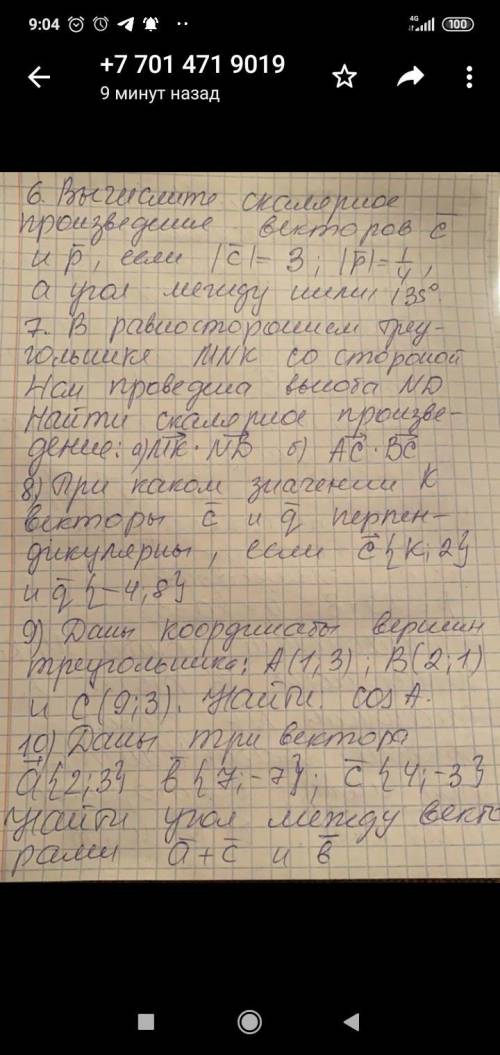 9:04
4G
100
+7 701 471 9019
9 минут назад
6. Вычислите скалярное
произведение векторов c̅
и p̅, если |c̅|= 3; |p̅|=1/4,
а угол между ними 135°.
7. В равностороннем треу-
гольнике MNK со стороной
проведена высота ND
Найти скалярное произве-
дение: а) MK⃗ · ND⃗ б) AC⃗ · BC⃗
8) При каком значении K
векторы c̅ и q̅ перпен-
дикулярны, если c̅{K; 2}
и q̅ {-4; 8}
9) Даны координаты вершин
треугольника: A(1; 3); B(2; 1)
и C (9; 3). Найти cos A.
10) Даны три вектора
a̅{2; 3} b̅ {7; -7}; c̅ {4; -3}
Найти угол между векто
рами a̅ + c̅ и b̅